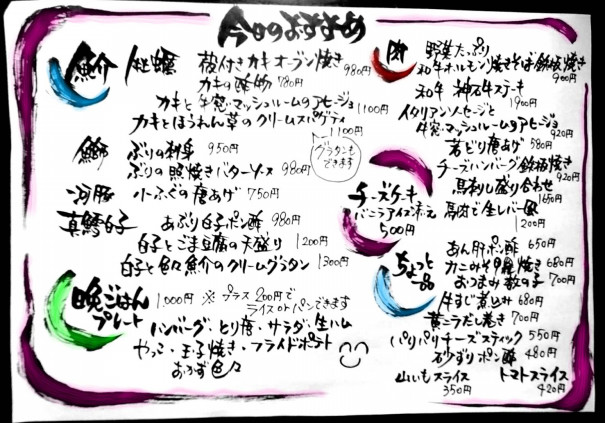 今日のおすすめ
魚介
牡蠣
殻付きカキオーブン焼き 980円
カキの酢物 780円
カキと牛窓マッシュルームのアヒージョ 1100円
カキとほうれん草のクリームスパゲティ 1100円
グラタンもできます
鰤
ぶりの刺身 950円
ぶりの照焼きバターソース 980円
河豚
小ふぐの唐あげ 750円
真鱈白子
あぶり白子ポン酢 980円
白子とごま豆腐の天盛り 1200円
白子と色々魚介のクリームグラタン 1300円
晩ごはんプレート
1,000円 ※プラス200円でライスorパンできます
ハンバーグ・とり唐・サラダ・生ハム
やっこ・玉子焼き・フライドポテト
おかず色々
肉
野菜たっぷり
和牛ホルモン焼きそば鉄板焼き 900円
和牛 神石牛ステーキ 1900円
イタリアンソーセージと
牛窓マッシュルームのアヒージョ 920円
若どり唐あげ 580円
チーズハンバーグ鉄板焼き 920円
馬刺し盛り合わせ 1650円
馬肉で生レバー風 1200円
チーズケーキ
バニラアイス添え
500円
ちょっと一品
あん肝ポン酢 650円
カニみそ甲羅焼き 680円
おつまみ数の子 700円
牛すじ煮込み 680円
黄ニラだし巻き 700円
パリパリチーズスティック 550円
砂ずりポン酢 480円
山いもスライス 350円
トマトスライス 420円